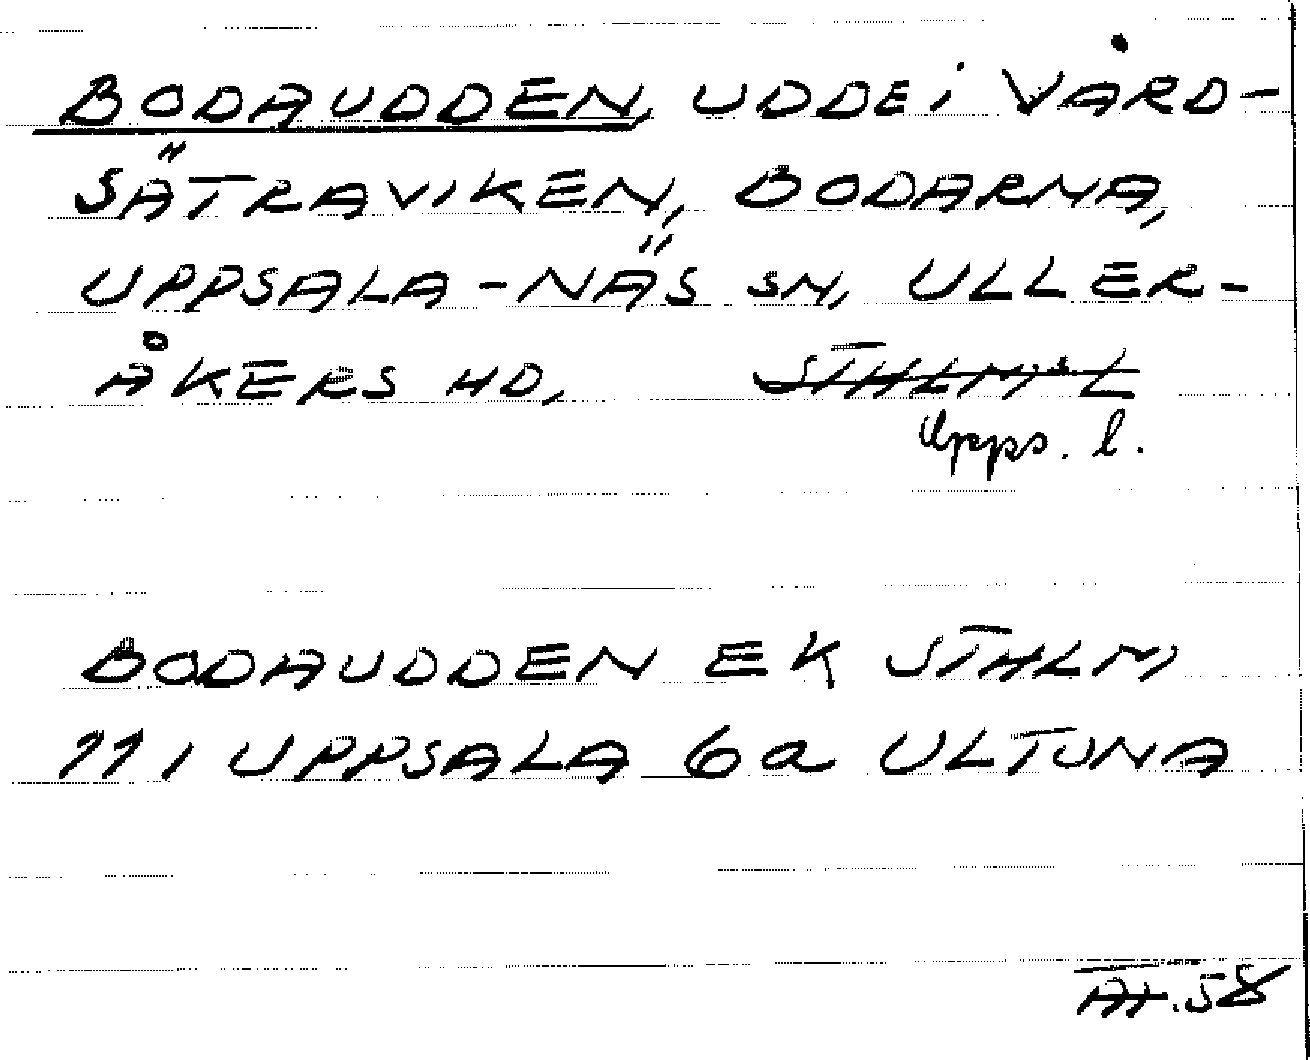 BODAUDDEN, UDDE i VÅRD-
SÄTRAVIKEN, BODARNA,
UPPSALA-NÄS SN, ULLER-
ÅKERS HD, STHLM'S L
Upps. l.
BODAUDDEN EK STHLM
111 UPPSALA 6a ULTUNA
AH.58